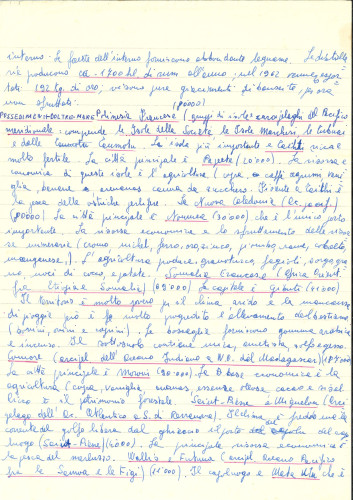 interno. Le foreste dell'interno forniscono abbondante legname. Le distille
rie producono ca. 1700 hl di rum all'anno; nel 1962 vennero espor
tati 192 kg. di oro; vi sono pure giacimenti di bauxite, per ora
non sfruttati. (80000)
POSSEDIMENTI D'OLTRO MARE Polinesia Francese (gruppi di isole e arcipelaghi del Pacifico
meridionale: comprende le Isole della Società le Isole Marchesi le Tubuai
e dalle Tuamotu. La isola più importante è Taiti, ricca e
molto fertile. La città principale è Papete (20'000). La risorsa e
conomica di queste isole è l'agricoltura (copra, caffè agrumi vani
glia, banane e ananas canna da zucchero. Fiorente a Taiti è
la pesca delle ostriche perlifere. La Nuova Caledonia (Oc. pacif.)
La città principale è Noumea (30'000) che è l'unico porto
importante. La risorsa economica è lo sfruttamento delle risor
se minerarie (cromo, nichel, ferro, argento, piombo, rame, cobalto,
manganese,). L'agricoltura produce: granoturco, fagioli, sorgo, a
grumi, noci di cocco, e patate. Somalia Francese (Africa Orient.
fra Etiopia e Somalia) La capitale è Gibuti
Il territorio è molto povero per il clima arido e la mancanza
di pioggia però è molto progredito l'allevamento del bestiame
(bovini, ovini e caprini). Le boscaglie forniscono gomma arabica
e incenso. Il sottosuolo contiene mica, ametista, e gesso.
Comore (arcipel. dell'Oceano Indiano a N.O. del Madagascar)
La città principale è Moroni La base economica è la
agricoltura (copra, vaniglia, ananas, essenze oleose, cacao e sisal
Ricco è il patrimonio forestale. Saint-Pierre e Miquelon (Arci
pelago dell'Oc. Atlantico a S. di Terranova). Il clima è freddo perché la
corrente del golfo libera dal ghiaccio il porto del capo
luogo (Saint-Pierre) La principale risorsa economica è
la pesca del merluzzo. Wallis e Futuna (arcipel. Oceano Pacifico
fra le Samoa e le Figi) Il capoluogo è Mata Utu che è